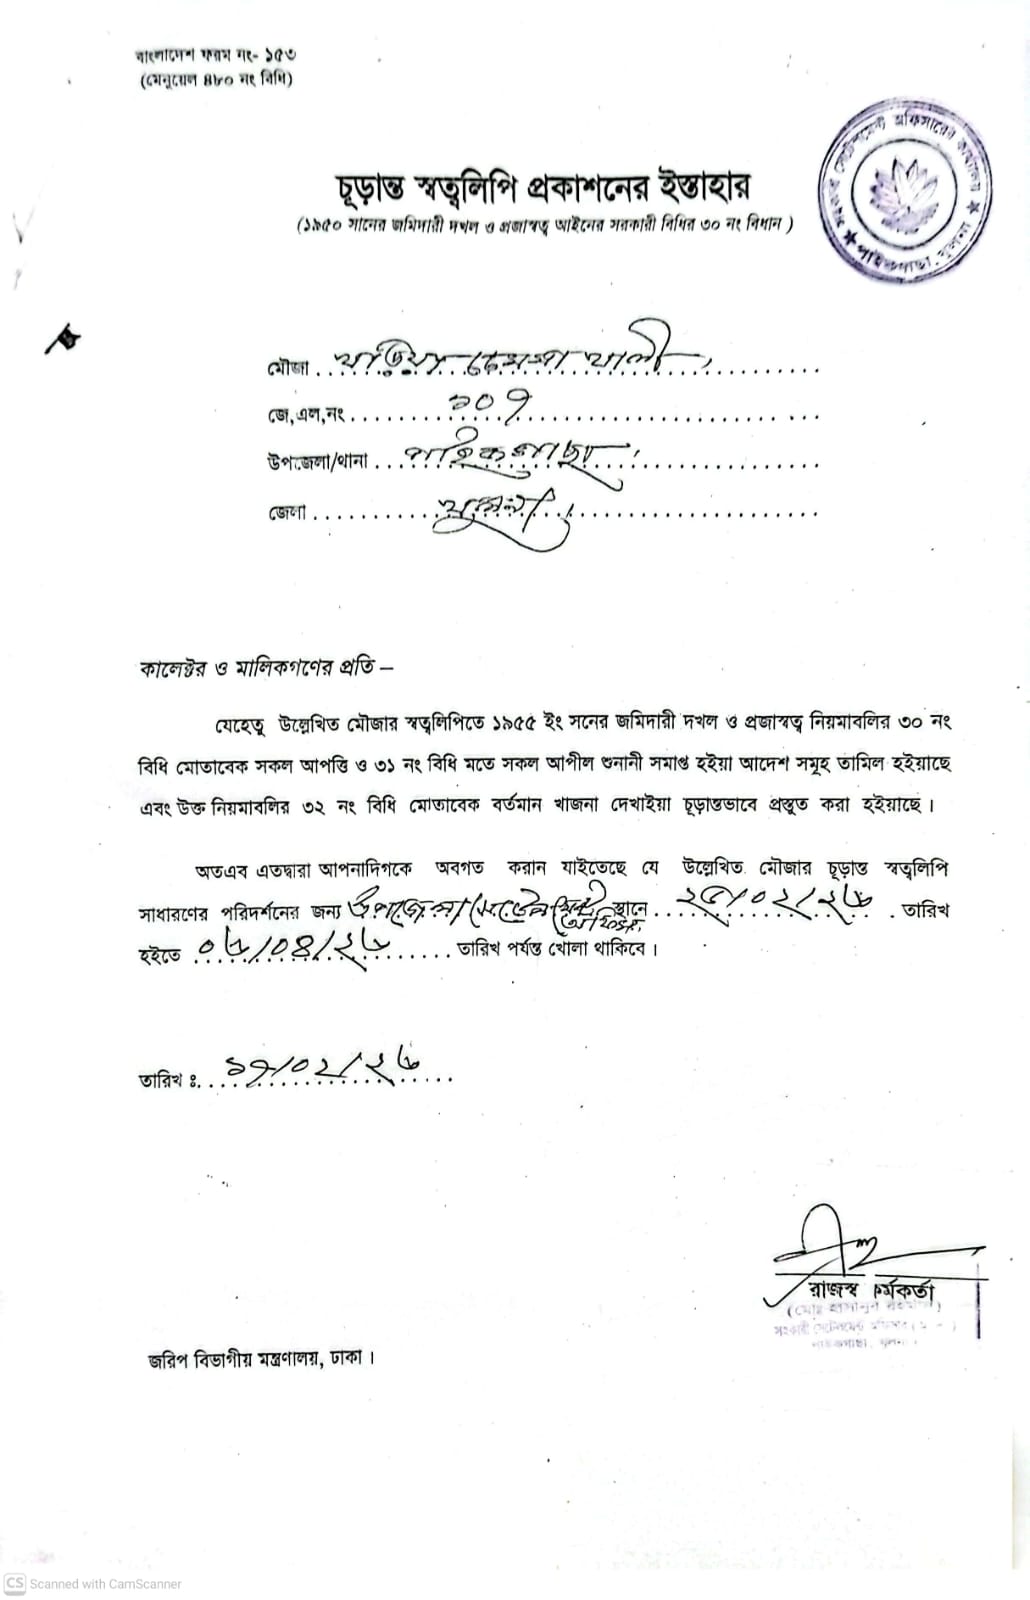 বাংলাদেশ ফরম নং- ১৫৩
(মেনুয়েল ৪৮০ নং বিধি)
সহকারী সেটেলমেন্ট অফিসারের কার্যালয়
পাইকগাছা, খুলনা
চূড়ান্ত স্বত্বলিপি প্রকাশনের ইস্তাহার
(১৯৫০ সানের জমিদারী দখল ও প্রজাস্বত্ব আইনের সরকারী বিধির ৩০ নং বিধান )
মৌজা . . খালী
জে,এল,নং . . . ১০৭
উপজেলা/থানা . . . পাইকগাছা
জেলা . . . খুলনা
কালেক্টর ও মালিকগণের প্রতি –
যেহেতু উল্লেখিত মৌজার স্বত্বলিপিতে ১৯৫৫ ইং সনের জমিদারী দখল ও প্রজাস্বত্ব নিয়মাবলির ৩০ নং
বিধি মোতাবেক সকল আপত্তি ও ৩১ নং বিধি মতে সকল আপীল শুনানী সমাপ্ত হইয়া আদেশ সমূহ তামিল হইয়াছে
এবং উক্ত নিয়মাবলির ৩২ নং বিধি মোতাবেক বর্তমান খাজনা দেখাইয়া চূড়ান্তভাবে প্রস্তুত করা হইয়াছে ।
অতএব এতদ্বারা আপনাদিগকে অবগত করান যাইতেছে যে উল্লেখিত মৌজার চূড়ান্ত স্বত্বলিপি
সাধারণের পরিদর্শনের জন্য উপজেলা সেটেলমেন্ট অফিস স্থানে . . . ২৫/০২/২৬ . তারিখ
হইতে ০৬/০৪/২৬ . . . তারিখ পর্যন্ত খোলা থাকিবে ।
তারিখ ঃ. . . ১৭/০২/২৬ . . .
রাজস্ব কর্মকর্তা
সহকারী সেটেলমেন্ট অফিসার
পাইকগাছা, খুলনা।
জরিপ বিভাগীয় মন্ত্রণালয়, ঢাকা ।
CS Scanned with CamScanner